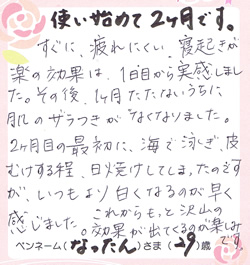 使い始めて2ヶ月です。
すぐに、疲れにくい、寝起きが
楽の効果は、1日目から実感しまし
た。その後、1ヶ月たたないうちに
肌のザラつきがなくなりました。
2ヶ月目の最初に、海で泳ぎ、皮
むけする程、日焼けしてしまったのです
が、いつもより白くなるのが早く
感じました。これからもっと沢山の
効果が出てくるのが楽しみ
です。
ペンネーム(なったん)さま(29)歳